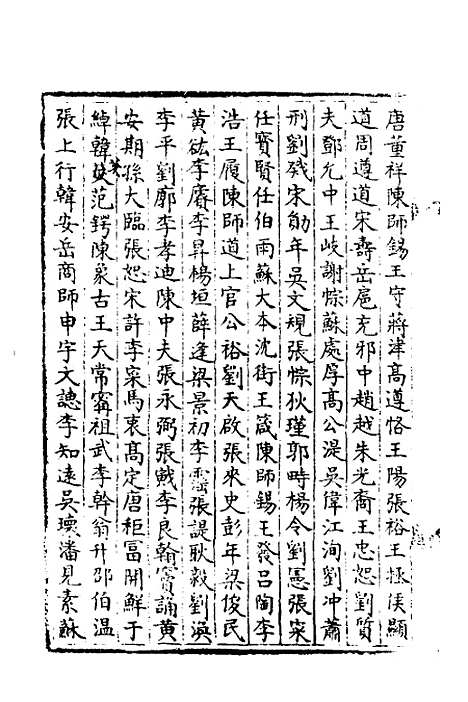 唐董祥陳師錫王守蔣津高遵恪王陽張裕王極侯顯
道周遵道宋壽岳扈充邪中趙越朱光裔王忠恕劉質
夫鄧允中王岐謝悰蘇處厚高公湜吳偉江洵劉冲蕭
刑劉戣宋勛年吳文規張悰狄瑾郭時楊令劉慝張寀
任寶賢任伯雨蘇大本沈街王箴陳師錫王發呂陶李
浩王履陳師道上官公裕劉天啟張來史彭年梁俊民
黃紘李膺李昇楊垣薛逢梁景初李張諟耿毅劉渙
李平劉廓李孝迪陳中夫張永弼張戩李良翰竇誦黃
安期孫大臨張恕宋許李寀馬衷髙定唐秬冨開鮮于
綽韓范鍔陳彖古王天常甯祖武李幹翁升邵伯温
張上行韓安岳商師申宇文諰李知遠吳瓌潘見素蘇